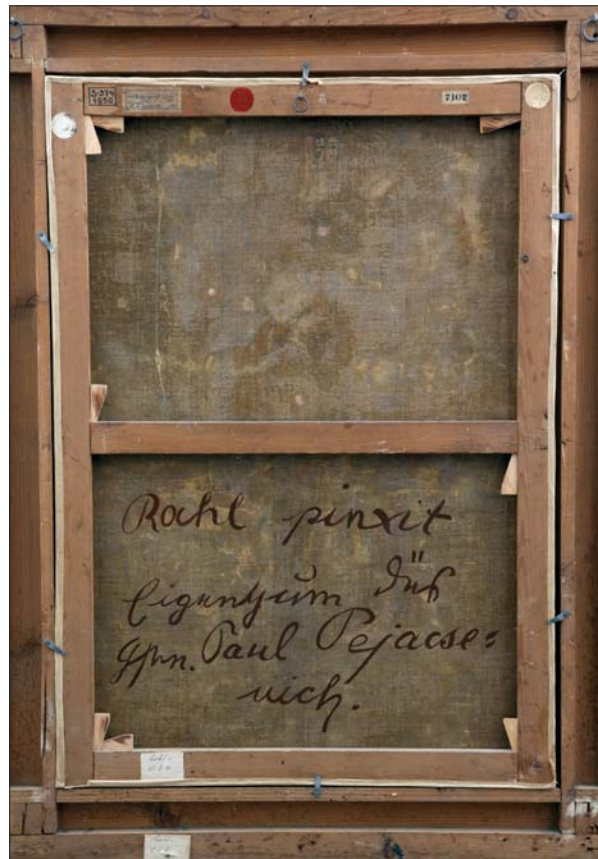 1950
7102
Rahl pinxit
Eigenthum des
Gfn. Paul Pejacse=
vich.